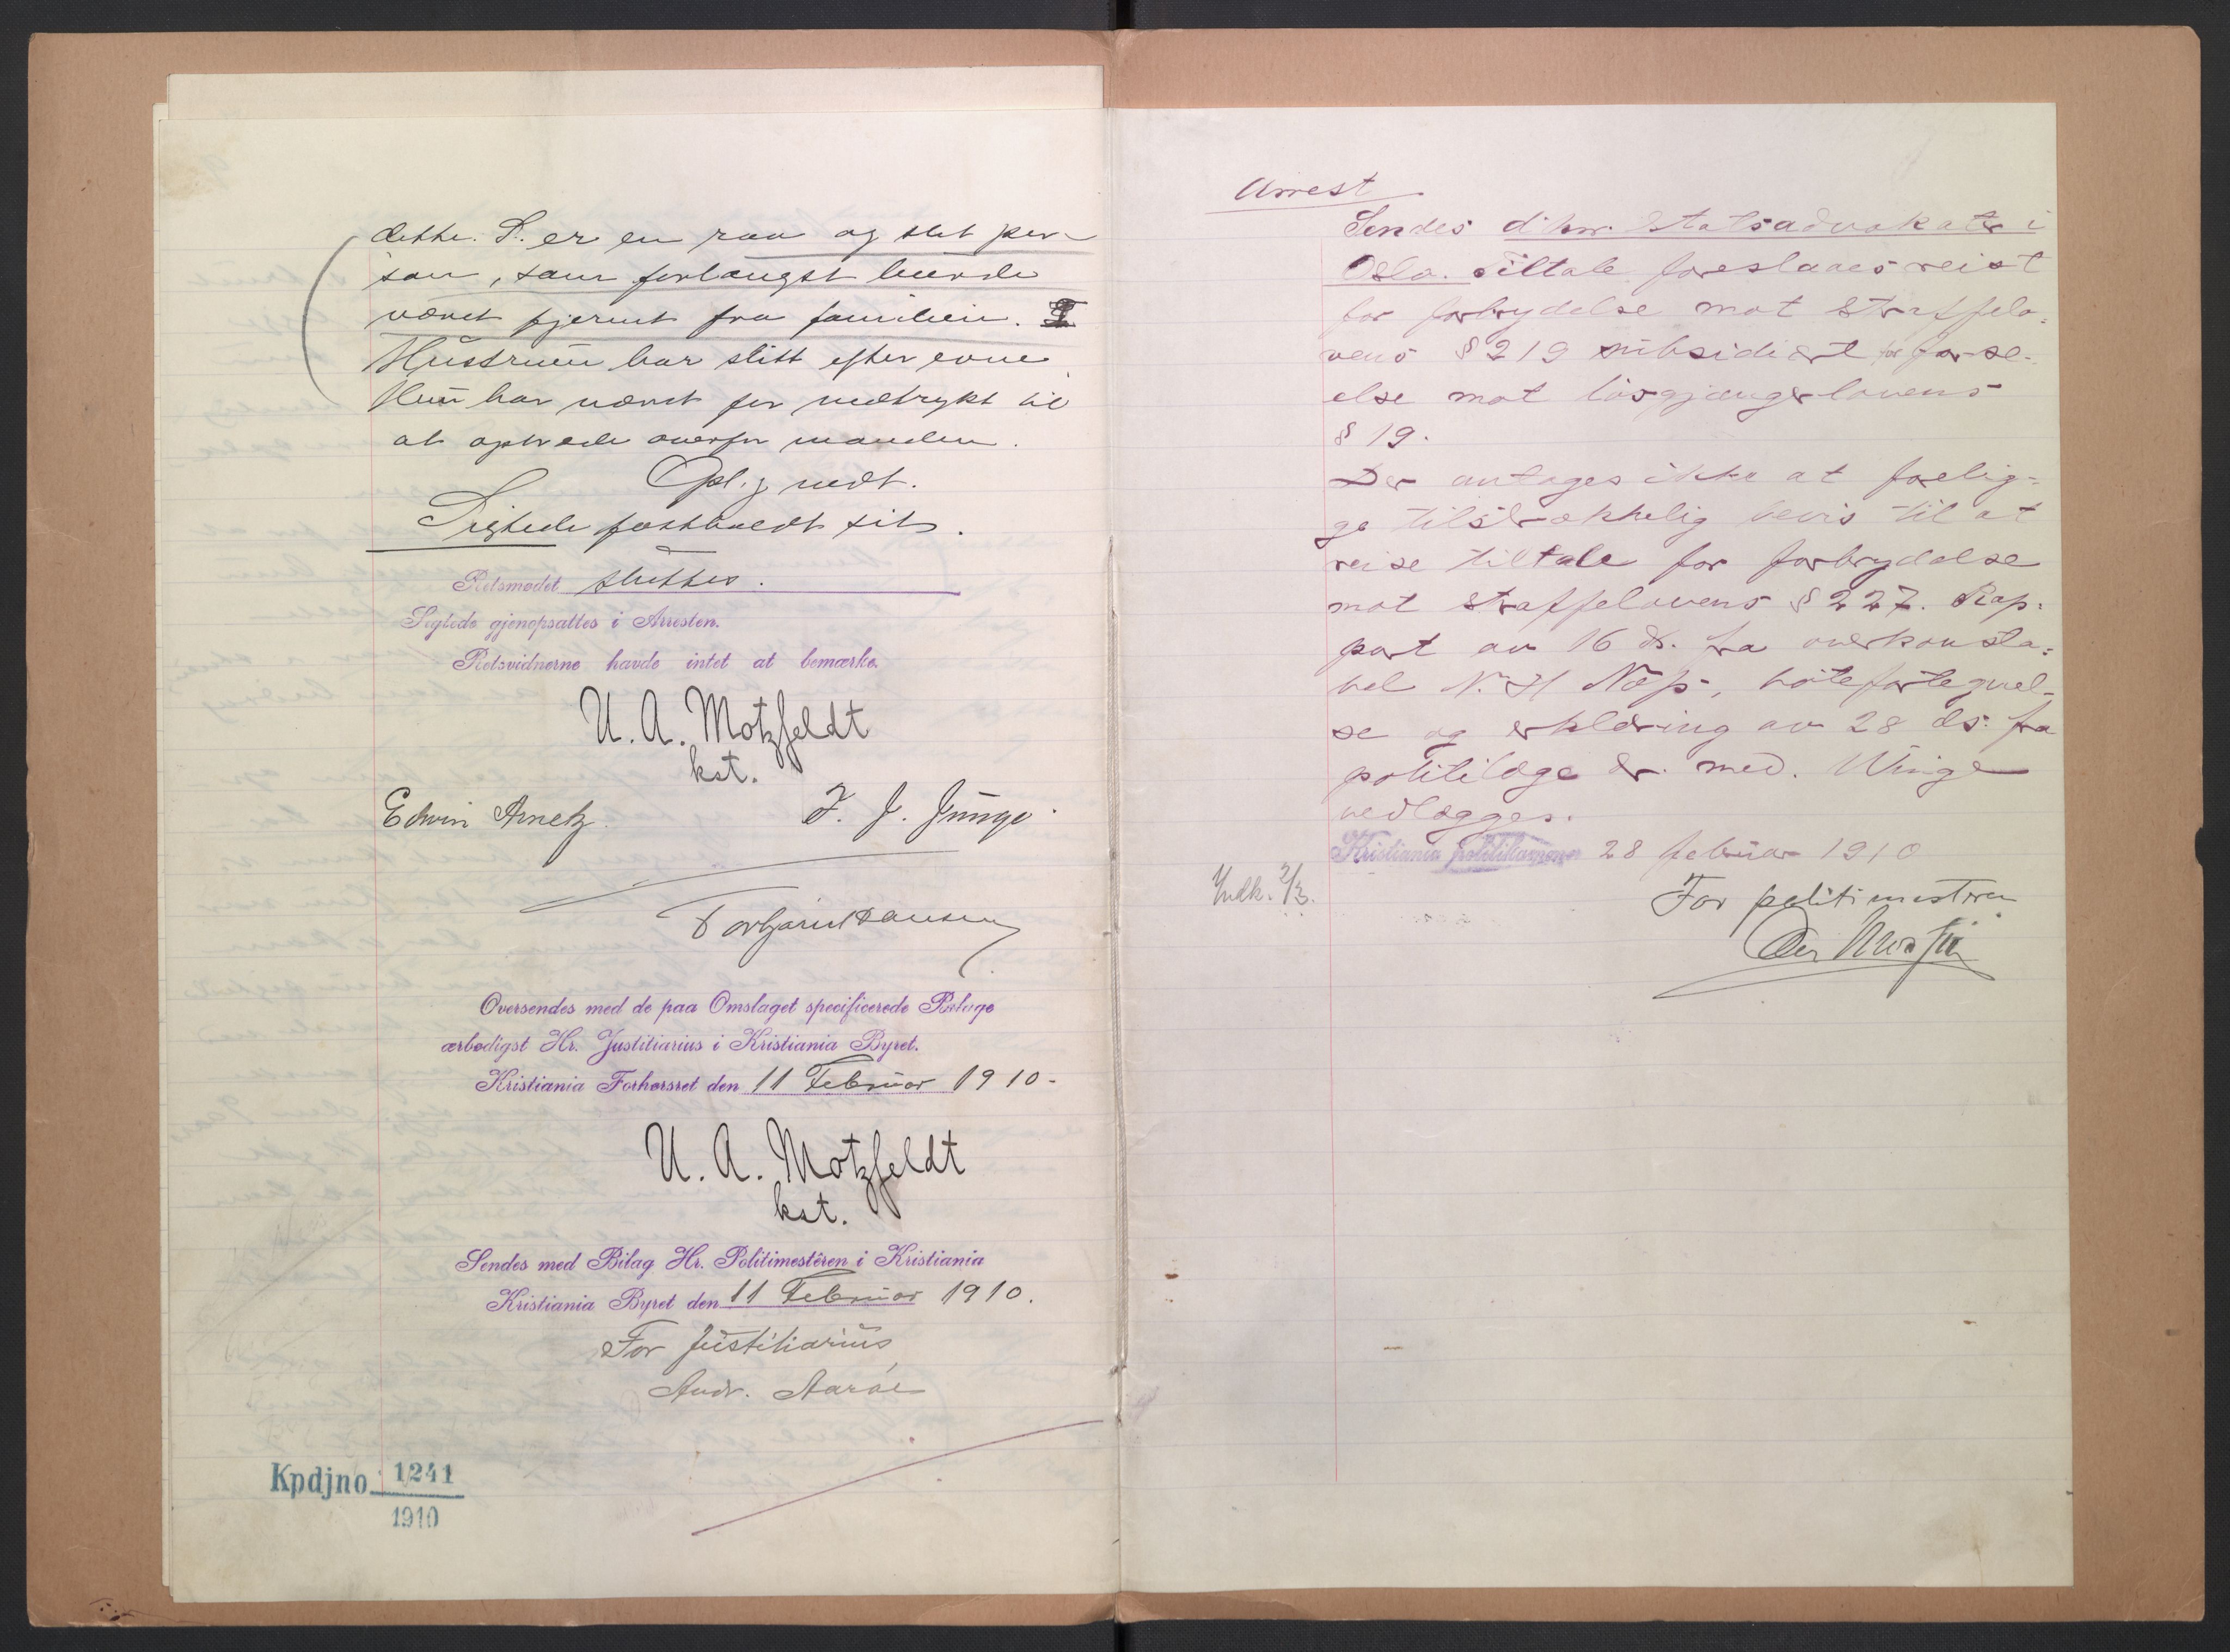 dette. S. er en raa og slet per-
son, som forlængst burde
været fjernet fra familien.
Hustruen har slitt efter evne.
Hun har været for nedtrykt til
at optræde overfor manden.
Opl. j vedt.
Sigtede fastholdt sit.
Retsmødet sluttes.
Sigtede gjenopsattes i Arresten.
Retsvidnerne havde intet at bemærke.
U. A. Motzfeldt
kst.
Edwin Arnetz. F. J. Junge.
Oversendes med de paa Omslaget specificerede Bilage
ærbødigst Hr. Justitiarius i Kristiania Byret.
Kristiania Forhørsret den 11 Februar 1910-
U. A. Motzfeldt
kst.
Sendes med Bilag Hr. Politimesteren i Kristiania
Kristiania Byret den 11 Februar 1910.
For Justitiarius
Andr. Aarøe
Kpdjno 1241
1910
Arrest
Sendes d'hrr. Statsadvokater i
Oslo. Tiltale foreslaaes reist
for forbrydelse mot straffelo=
vens § 219 subsidiært for forse-
else mot løsgjængerlovens
§ 19.
Der antages ikke at forelig=
ge tilstrækkelig bevis til at
reise tiltale for forbrydelse
mot straffelovens § 227. Rap=
port av 16 ds. fra overkonsta=
bel N. H. Næps, bøtefortegnel-
se og erklæring av 28 ds. fra
politilæge dr. med. Winge
vedlægges.
Kristiania politikammer 28 februar 1910
Indk. 2/3.
For politimesteren